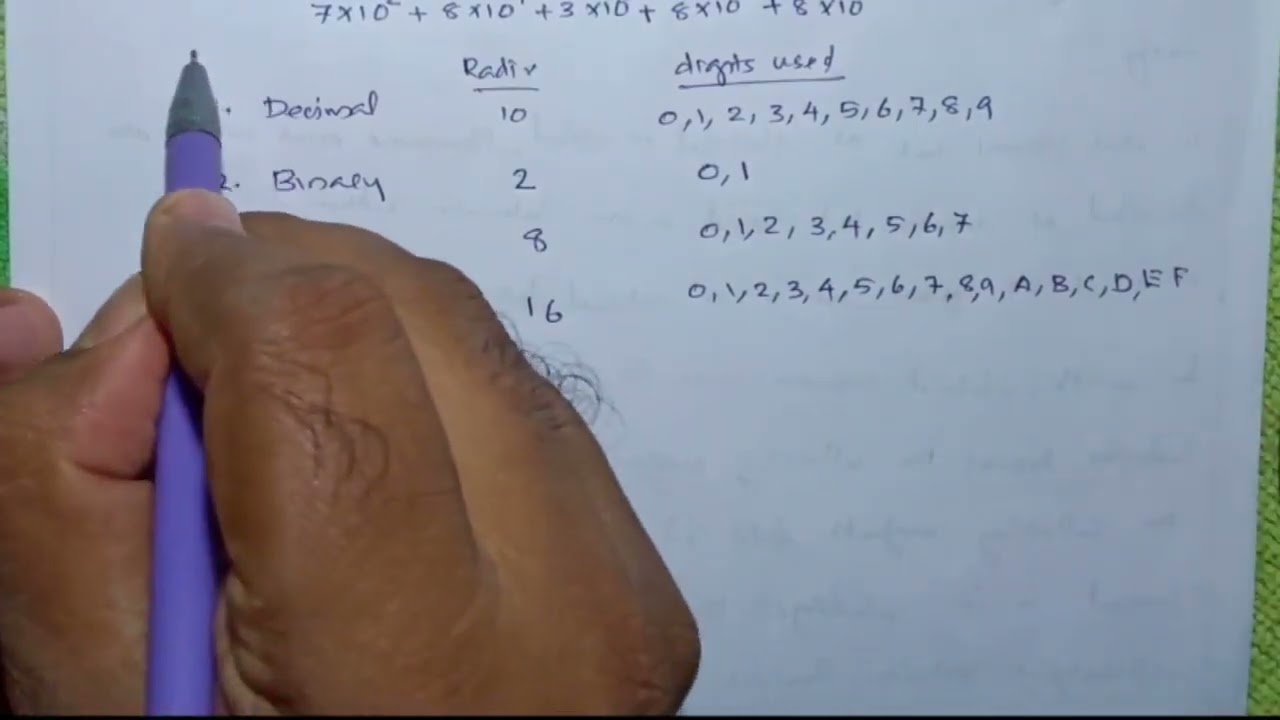 7×10² + 8×10¹ + 3×10 + 8×10 + 8×10
Radix digits used
1. Decimal 10 0,1,2,3,4,5,6,7,8,9
2. Binary 2 0,1
8 0,1,2,3,4,5,6,7
16 0,1,2,3,4,5,6,7,8,9,A,B,C,D,E F